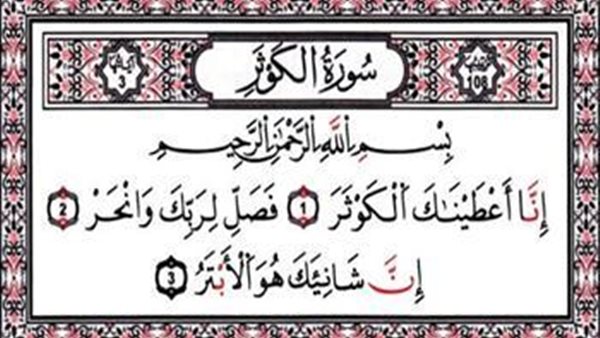 سُورَةُ الكَوْثَرِ
آياتها 3
ترتيبها 108
بِسْمِ اللَّهِ الرَّحْمَٰنِ الرَّحِيمِ
إِنَّا أَعْطَيْنَٰكَ الْكَوْثَرَ 1 فَصَلِّ لِرَبِّكَ وَانْحَرْ 2
إِنَّ شَانِئَكَ هُوَ الْأَبْتَرُ 3